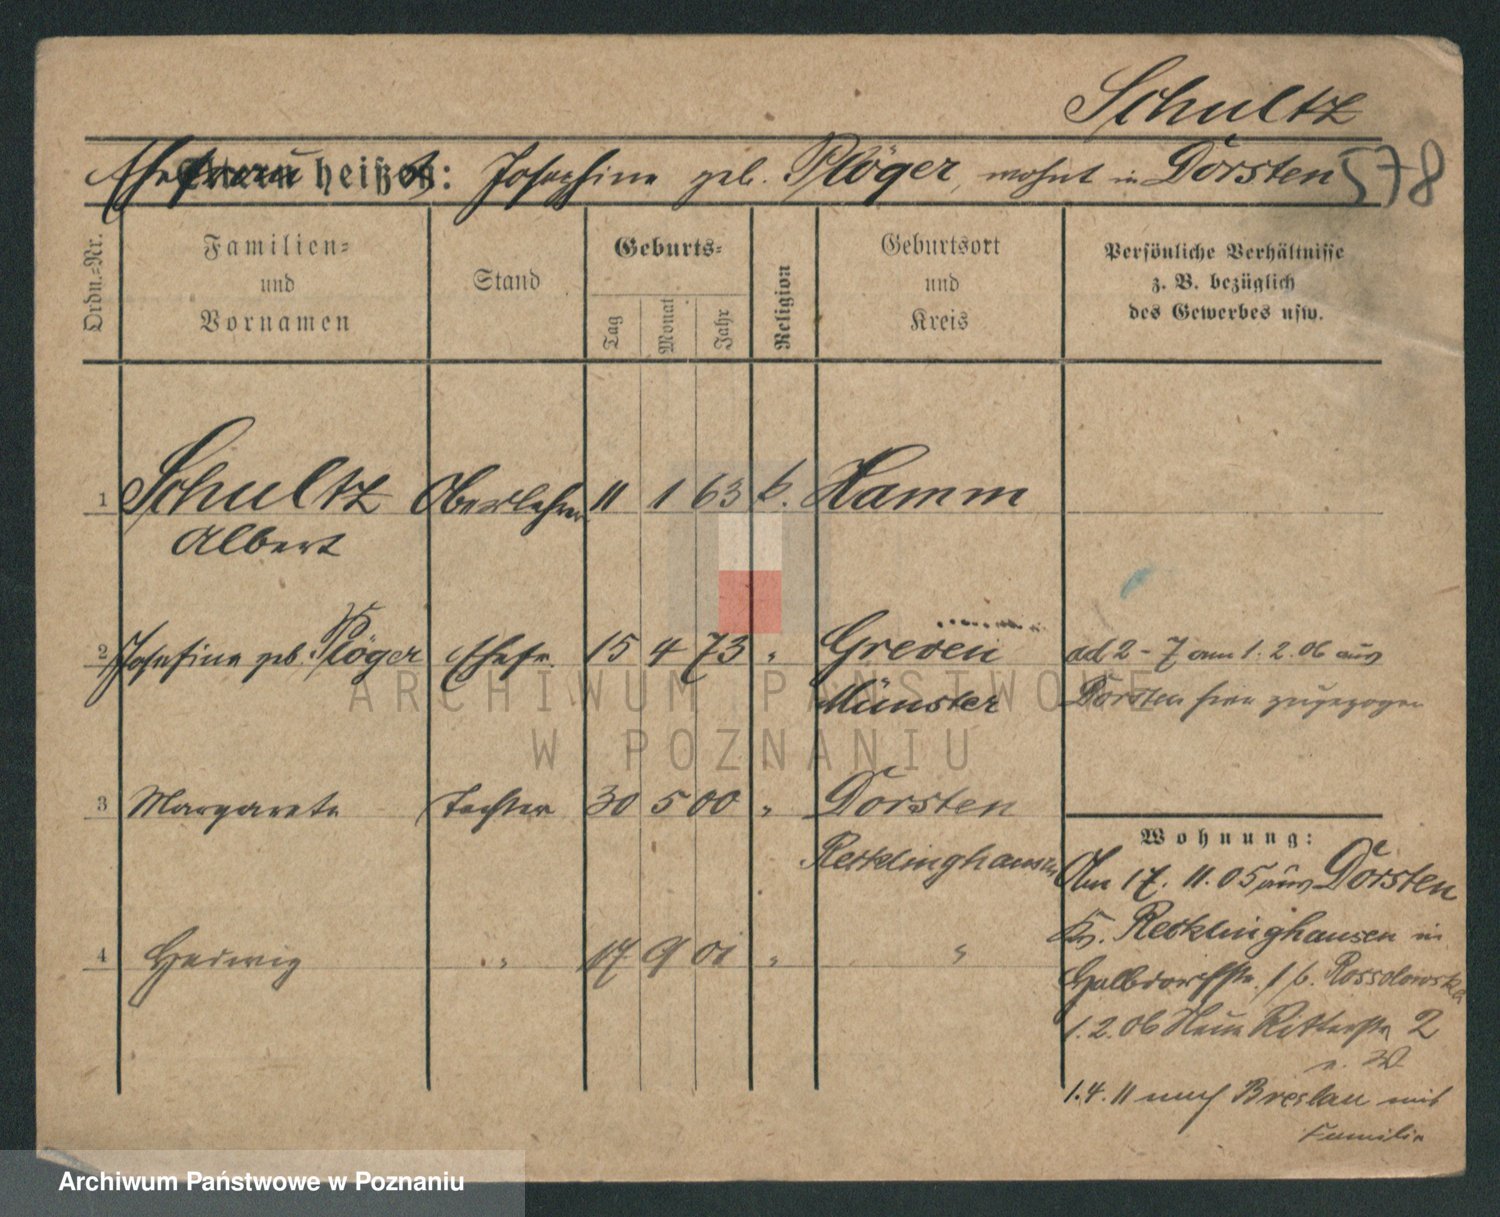 Schultz
Ehefrau heißt: Josephine geb. Plöger, wohnt in Dorsten 578
Ordn.=Nr.
Familien=
und
Vornamen
Stand
Geburts=
Tag
Monat
Jahr
Religion
Geburtsort
und
Kreis
Persönliche Verhältnisse
z. B. bezüglich
des Gewerbes usw.
1 Schultz Oberlehrer 11 1 63 k. Hamm
Albert
2 Josefine geb. Plöger Ehefr. 15 4 73 " Greven ad 2 - 7 am 1.2.06 aus
Münster Dorsten hier zugezogen
3 Margarete Tochter 30 5 00 " Dorsten
Recklinghausen
4 Hedwig " 17 9 01 " "
Wohnung:
Am 17.11.05 aus Dorsten
Kr. Recklinghausen in
Halbdorfstr. b.
1.2.06 Neue Ritterstr 2
1.4.11 nach Breslau mit
Familie
ARCHIWUM PAŃSTWOWE
W POZNANIU
Archiwum Państwowe w Poznaniu